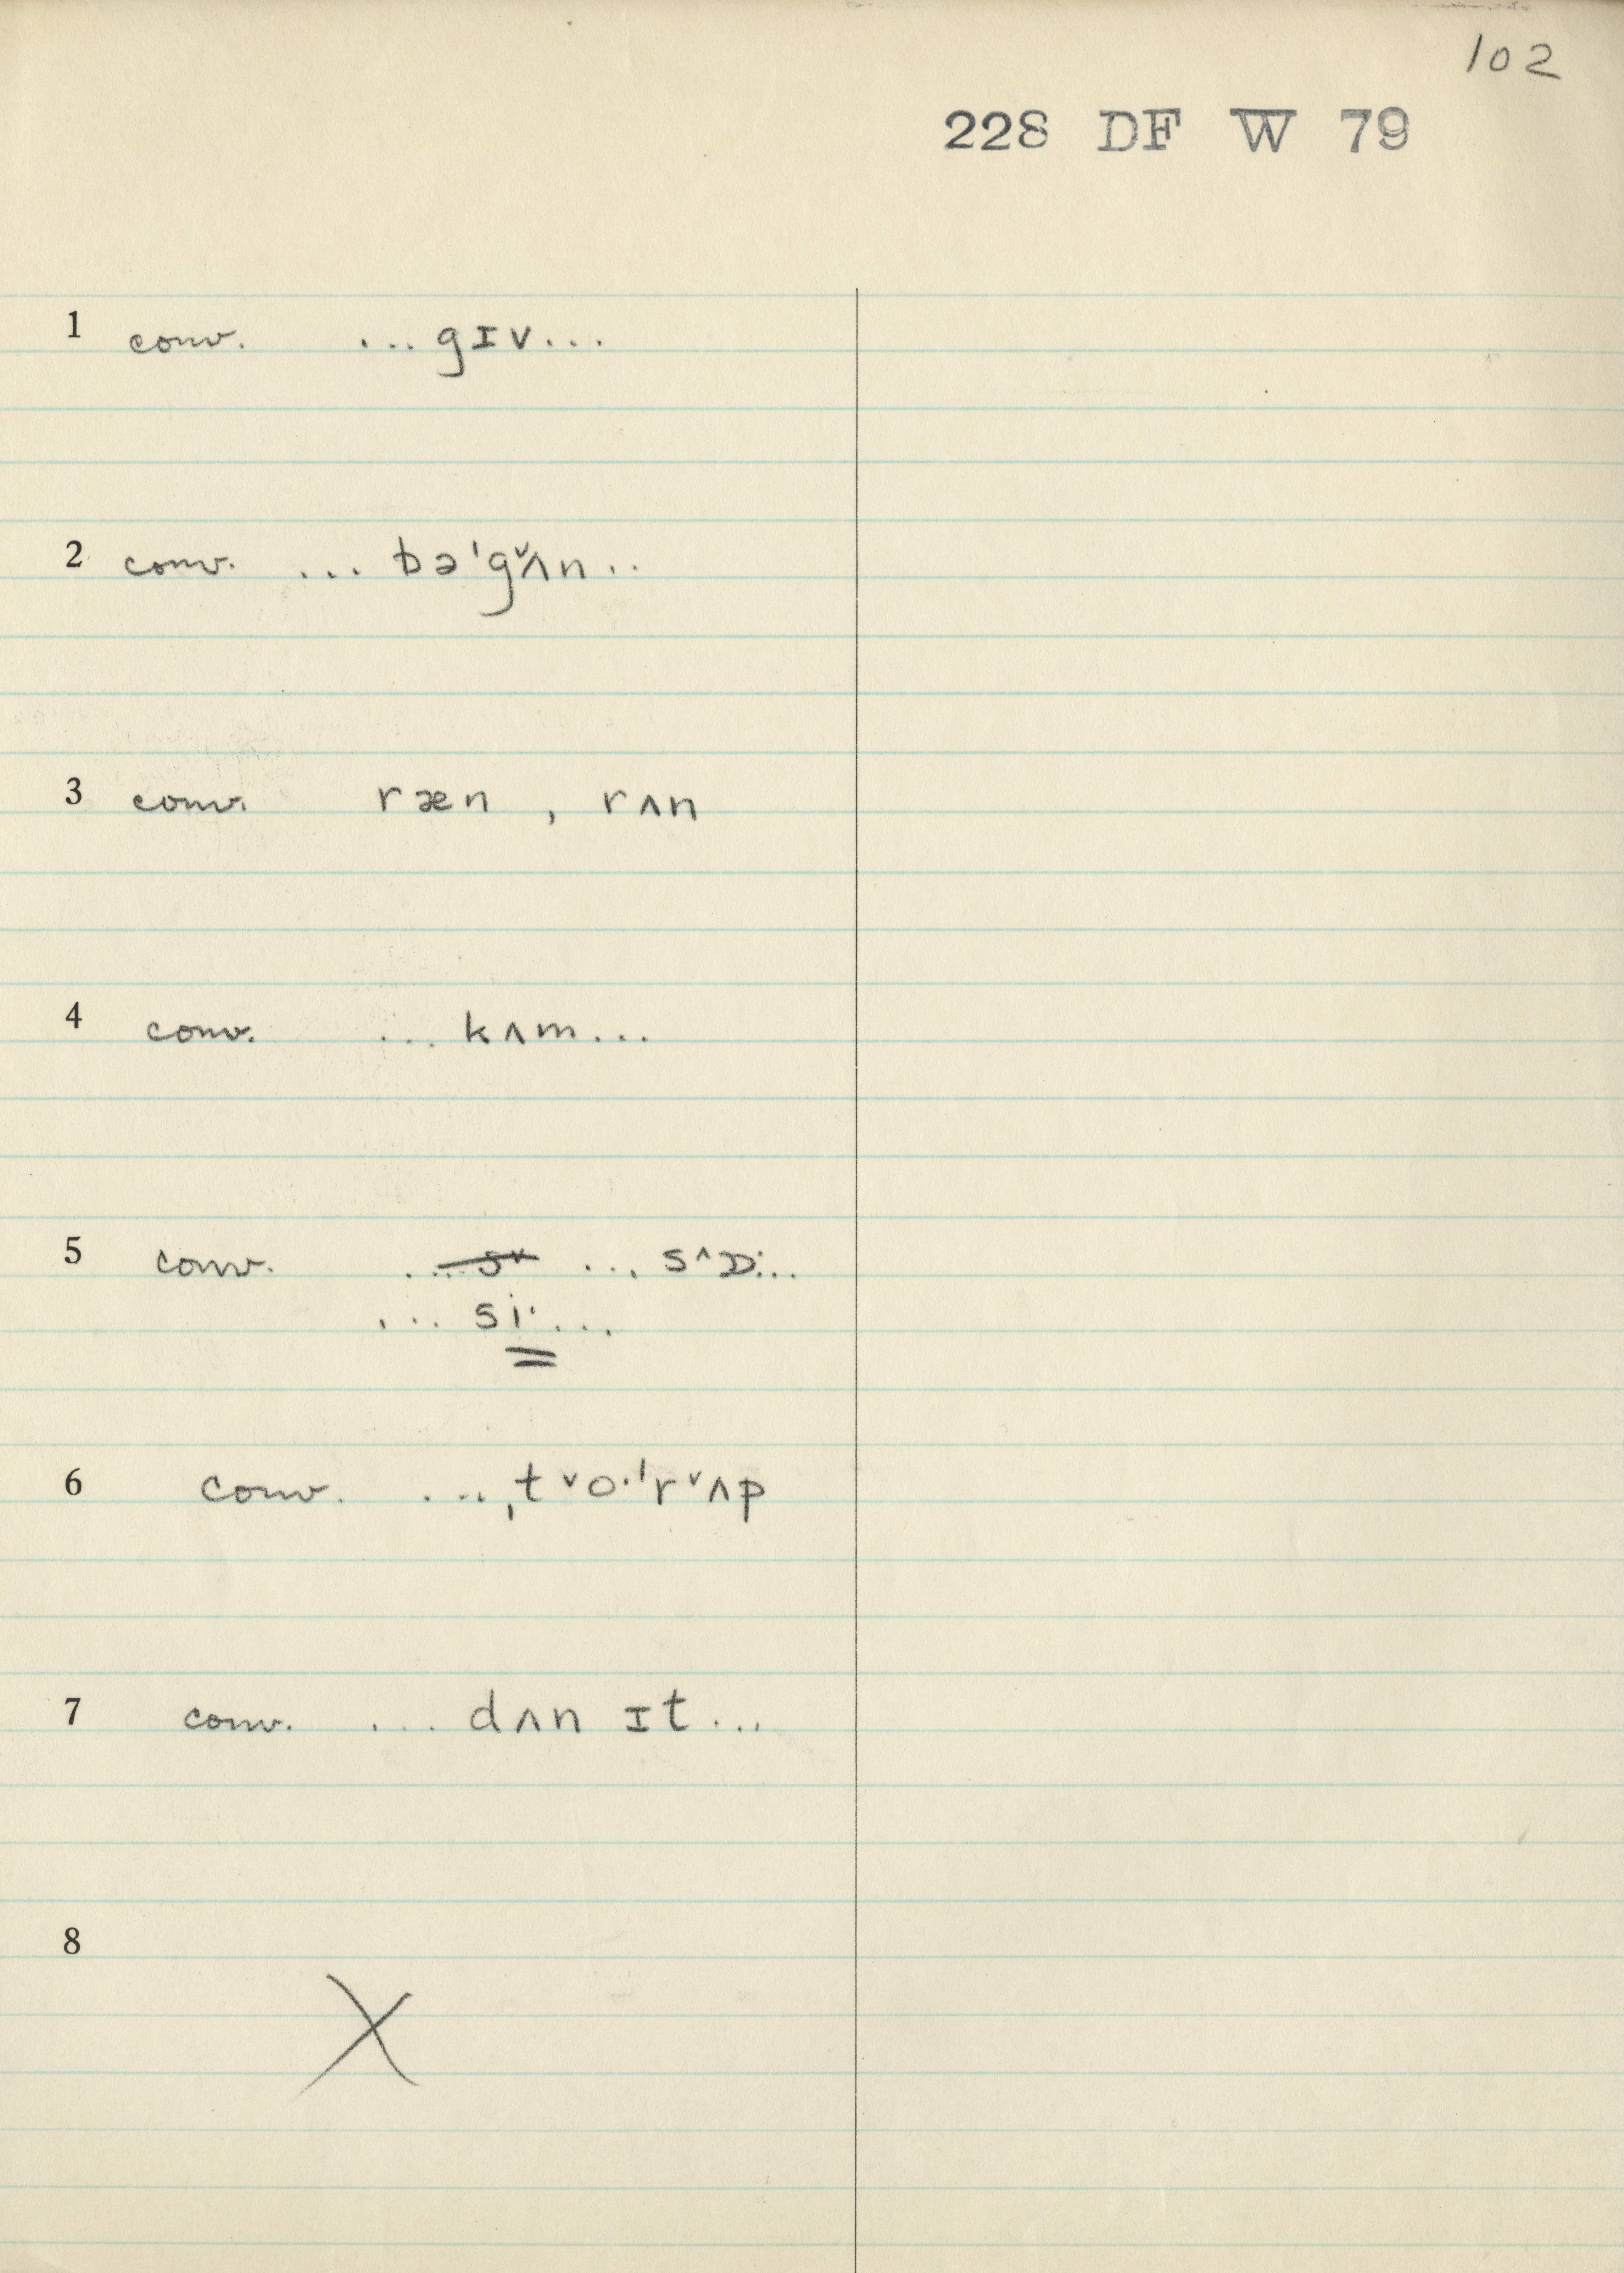 102
228 DF W 79
1 conv. ...gɪv...
2 conv. ... bəˈgˇʌn..
3 conv. ræn , rʌn
4 conv. ...kʌm...
5 conv. ... s^ɒ:...
... si· ...
6 conv. ...ˌtˇo·ˈrˇʌp
7 conv. ... dʌn ɪt ...
8 X